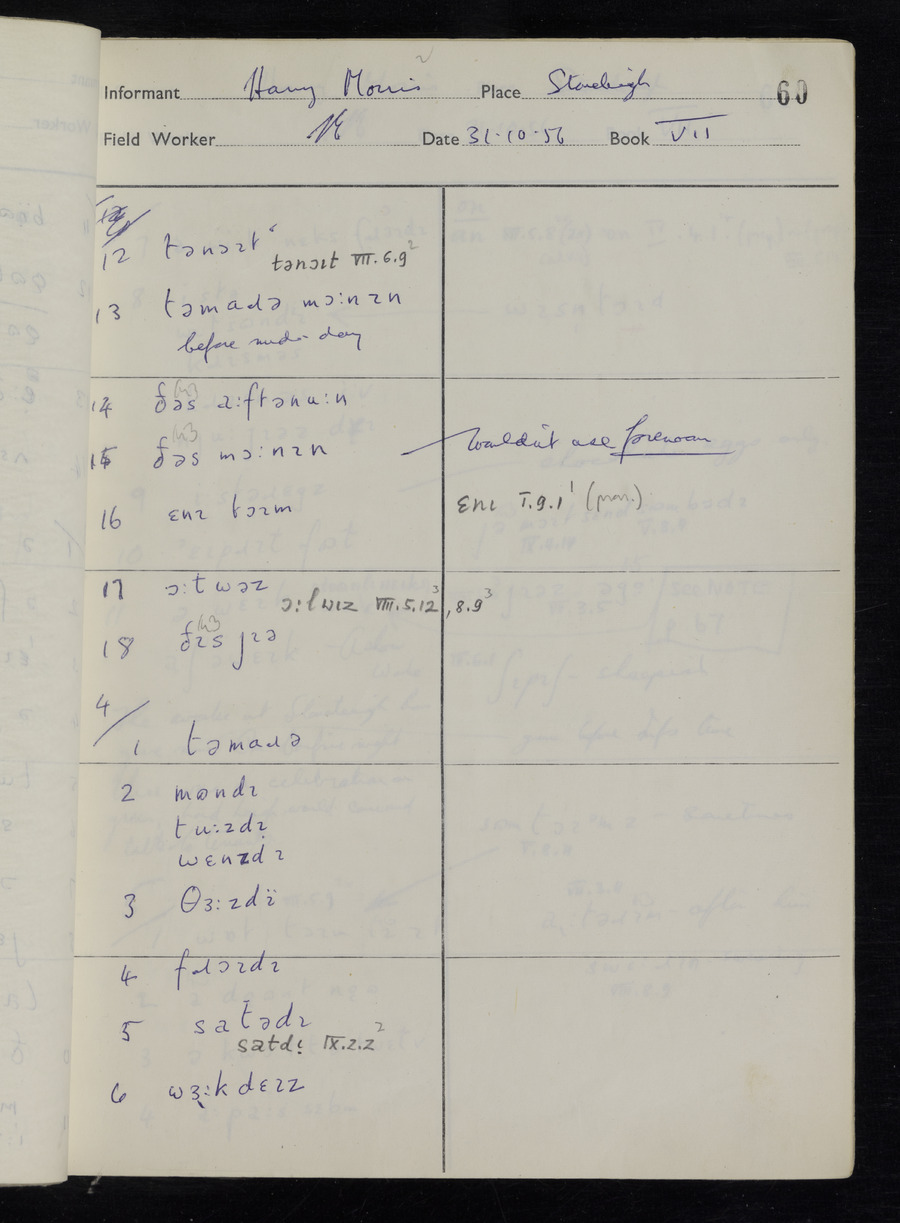 Informant Harry Morris Place Stoneleigh 60
Field Worker Date 31·10·56 Book VII
12 tənɔɪt
tənɔɪt VII.6.9²
13 təmaɹə mɔ:nɪn
before mid-day
14 ðəs a:ftənu:n
15 ðəs mɔ:nɪn wouldn't use forenoon
16 ɛnɪ tɔɪm ɛnɪ V.9.1¹ (pron.)
17 ɔ:lwəz
ɔ:lwɪz VIII.5.12³, 8.9³
18 ðɪs jɪə
4/
1 təmaɹə
2 mʊndɪ
tu:zdɪ
wɛnzdɪ
3 θɜ:zdï
4 fɹɔɪdɪ
5 satədɪ
satdɪ IX.2.2²
6 wɜ:k dɛɪz